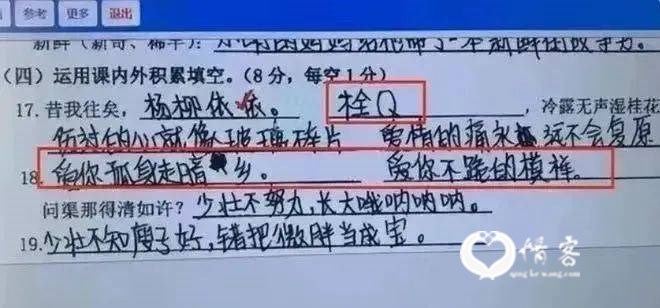 参考 更多 退出
新鲜(新奇、稀罕):
(四)运用课内外积累填空。(8分,每空1分)
17.昔我往矣,杨柳依依。 栓Q ,冷露无声湿桂花
伤过的心就像玻璃碎片 爱情的痛永远不会复原
18.爱你孤身走暗乡。 爱你不跪的模样。
问渠那得清如许?少壮不努力,长大哦呐呐呐。
19.少壮不知瘦子好,错把微胖当成宝。
情客
qing ke wang.com